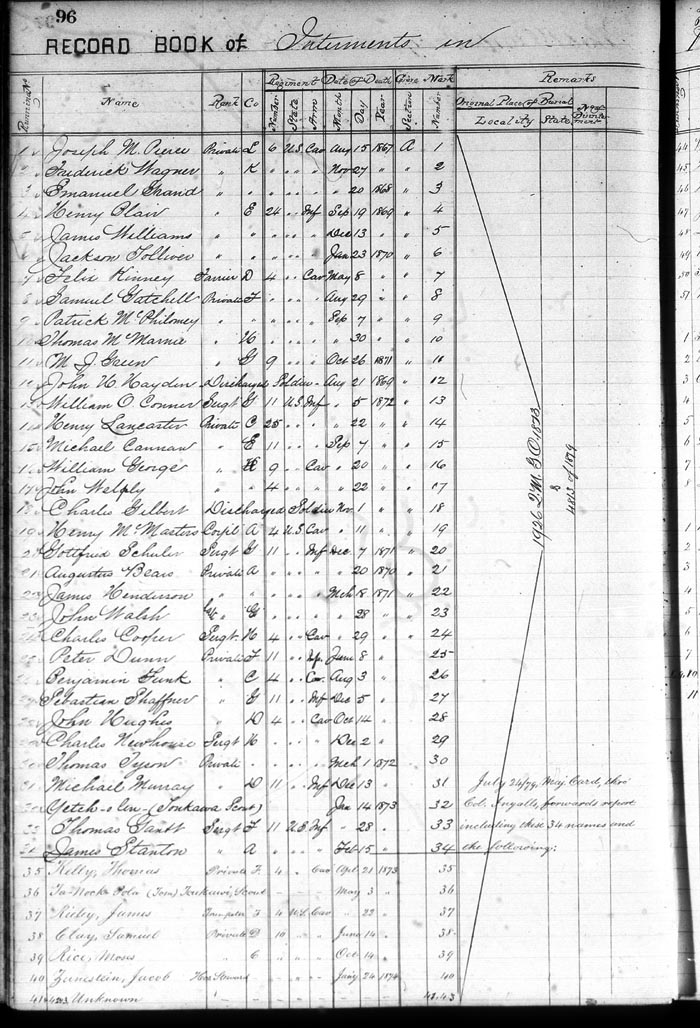 96
RECORD BOOK of Interments in
Running No. Name Rank Co Regiment Date of Death Grave Mark Remarks
Number State Arm Month Day Year Section Number Original Place of Burial
Locality State
1 Joseph M. Pierce Private L 6 U.S. Cav Aug 15 1867 A 1
" Frederick Wagner " K " " " Nov 27 " " 2
3 Emanuel " " " " " " 20 1868 " 3
4 Henry Clair " E 24 " Inf Sep 19 1869 " 4
James Williams " " " " " Dec 13 " " 5
Jackson Tolliver " " " " " Jan 23 1870 " 6
7 Felix Kinney Farrier D 4 " Cav May 8 " " 7
8 Samuel Gatchell Private F " " " Aug 29 " " 8
9 Patrick McPhilomey " " " " " Sep 7 " " 9
Thomas McMarnie " H " " " " 30 " " 10
11 M. J. Green " G 9 " " Oct 26 1871 " 11
John H Hayden Discharged Soldier " Aug 21 1869 " 12
William O Conner Sergt G 11 U.S. Inf " 5 1872 " 13
Henry Lancaster Private C 25 " " " 22 " " 14
15 Michael Cannaw " E 11 " " Sep 7 " " 15
William George " H 9 " Cav " 20 " " 16
17 John Welply " 4 " " " 22 " " 17
18 Charles Gilbert Discharged Soldier Nov 1 " " 18
19 Henry McMasters Corpl A 4 U.S. Cav " 11 " " 19
20 Gottfried Schuler Sergt G 11 " Inf Dec 7 1871 " 20
21 Augustus Bears Private A " " " " 20 1870 " 21
James Henderson " " " " " Mch 18 1871 " 22
23 John Walsh " G " " " " 28 " " 23
24 Charles Cooper Sergt H 4 " Cav " 29 " " 24
Peter Dunn Private F 11 " Inf June 8 " " 25
Benjamin Funk " C 4 " Cav Aug 3 " " 26
Sebastian Shaffner " G 11 " Inf Dec 5 " " 27
John Hughes " D 4 " Cav Oct 14 " " 28
Charles Newhouse Sergt H " " " Dec 2 " " 29
Thomas Tyson Private " " " " Mch 1 1872 " 30
31 Michael Murray " D 11 " Inf Dec 13 " " 31 July 24/79, Maj. Card, thro'
(Tonkawa Scout) Jan 14 1873 " 32 Col. Ingalls, forwards report
33 Thomas Gantt Sergt F 11 U.S. Inf " 28 " " 33 including these 34 names and
James Stanton " A " " " Feb 15 " " 34 the following:
35 Kelly, Thomas Private F. 4 " Cav Apl. 21 1873 35
36 (Tom) Scout May 3 " 36
37 James Trumpeter F 4 U.S. Cav " 22 " 37
38 Clay, Samuel Private D 10 " " June 14 " 38
39 Rice, Moses " C " " " Oct 14 " 39
40 Jacob Hos. Steward " " " Jany 24 1874 40
41 42 43 Unknown 41.43
1926 Q.M.G.O. 1873
&
4013 of 1879